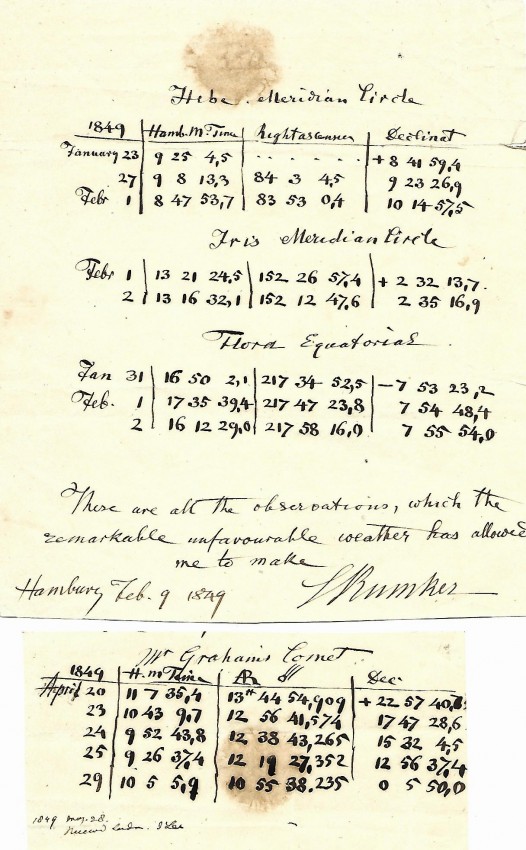 Hebe. Meridian Circle
1849 Hamb. M. Time Rightascension Declinat
January 23 9 25 4,5 . . . . . . +8 41 59,4
27 9 8 13,3 84 3 4,5 9 23 26,9
Febr 1 8 47 53,7 83 53 0,4 10 14 57,5
Iris Meridian Circle
Febr 1 13 21 24,5 152 26 57,4 + 2 32 13,7
2 13 16 32,1 152 12 47,6 2 35 16,9
Flora Equatorial
Jan 31 16 50 2,1 217 34 52,5 -7 53 23,2
Feb. 1 17 35 39,4 217 47 23,8 7 54 48,4
2 16 12 29,0 217 58 16,0 7 55 54,0
These are all the observations, which the
remarkable unfavourable weather has allowed
me to make
Hamburg Feb. 9 1849 Rumker
Mr Grahams Comet
1849 H. m Time AR Dec
April 20 11 7 35,4 13h 44 54,909 + 22 57 40,8
23 10 43 9,7 12 56 41,574 17 47 28,6
24 9 52 43,8 12 38 43,265 15 32 4,5
25 9 26 37,4 12 19 27,352 12 56 37,4
29 10 5 5,9 10 55 38.235 0 5 50,0
1849 May. 28.
J Lee